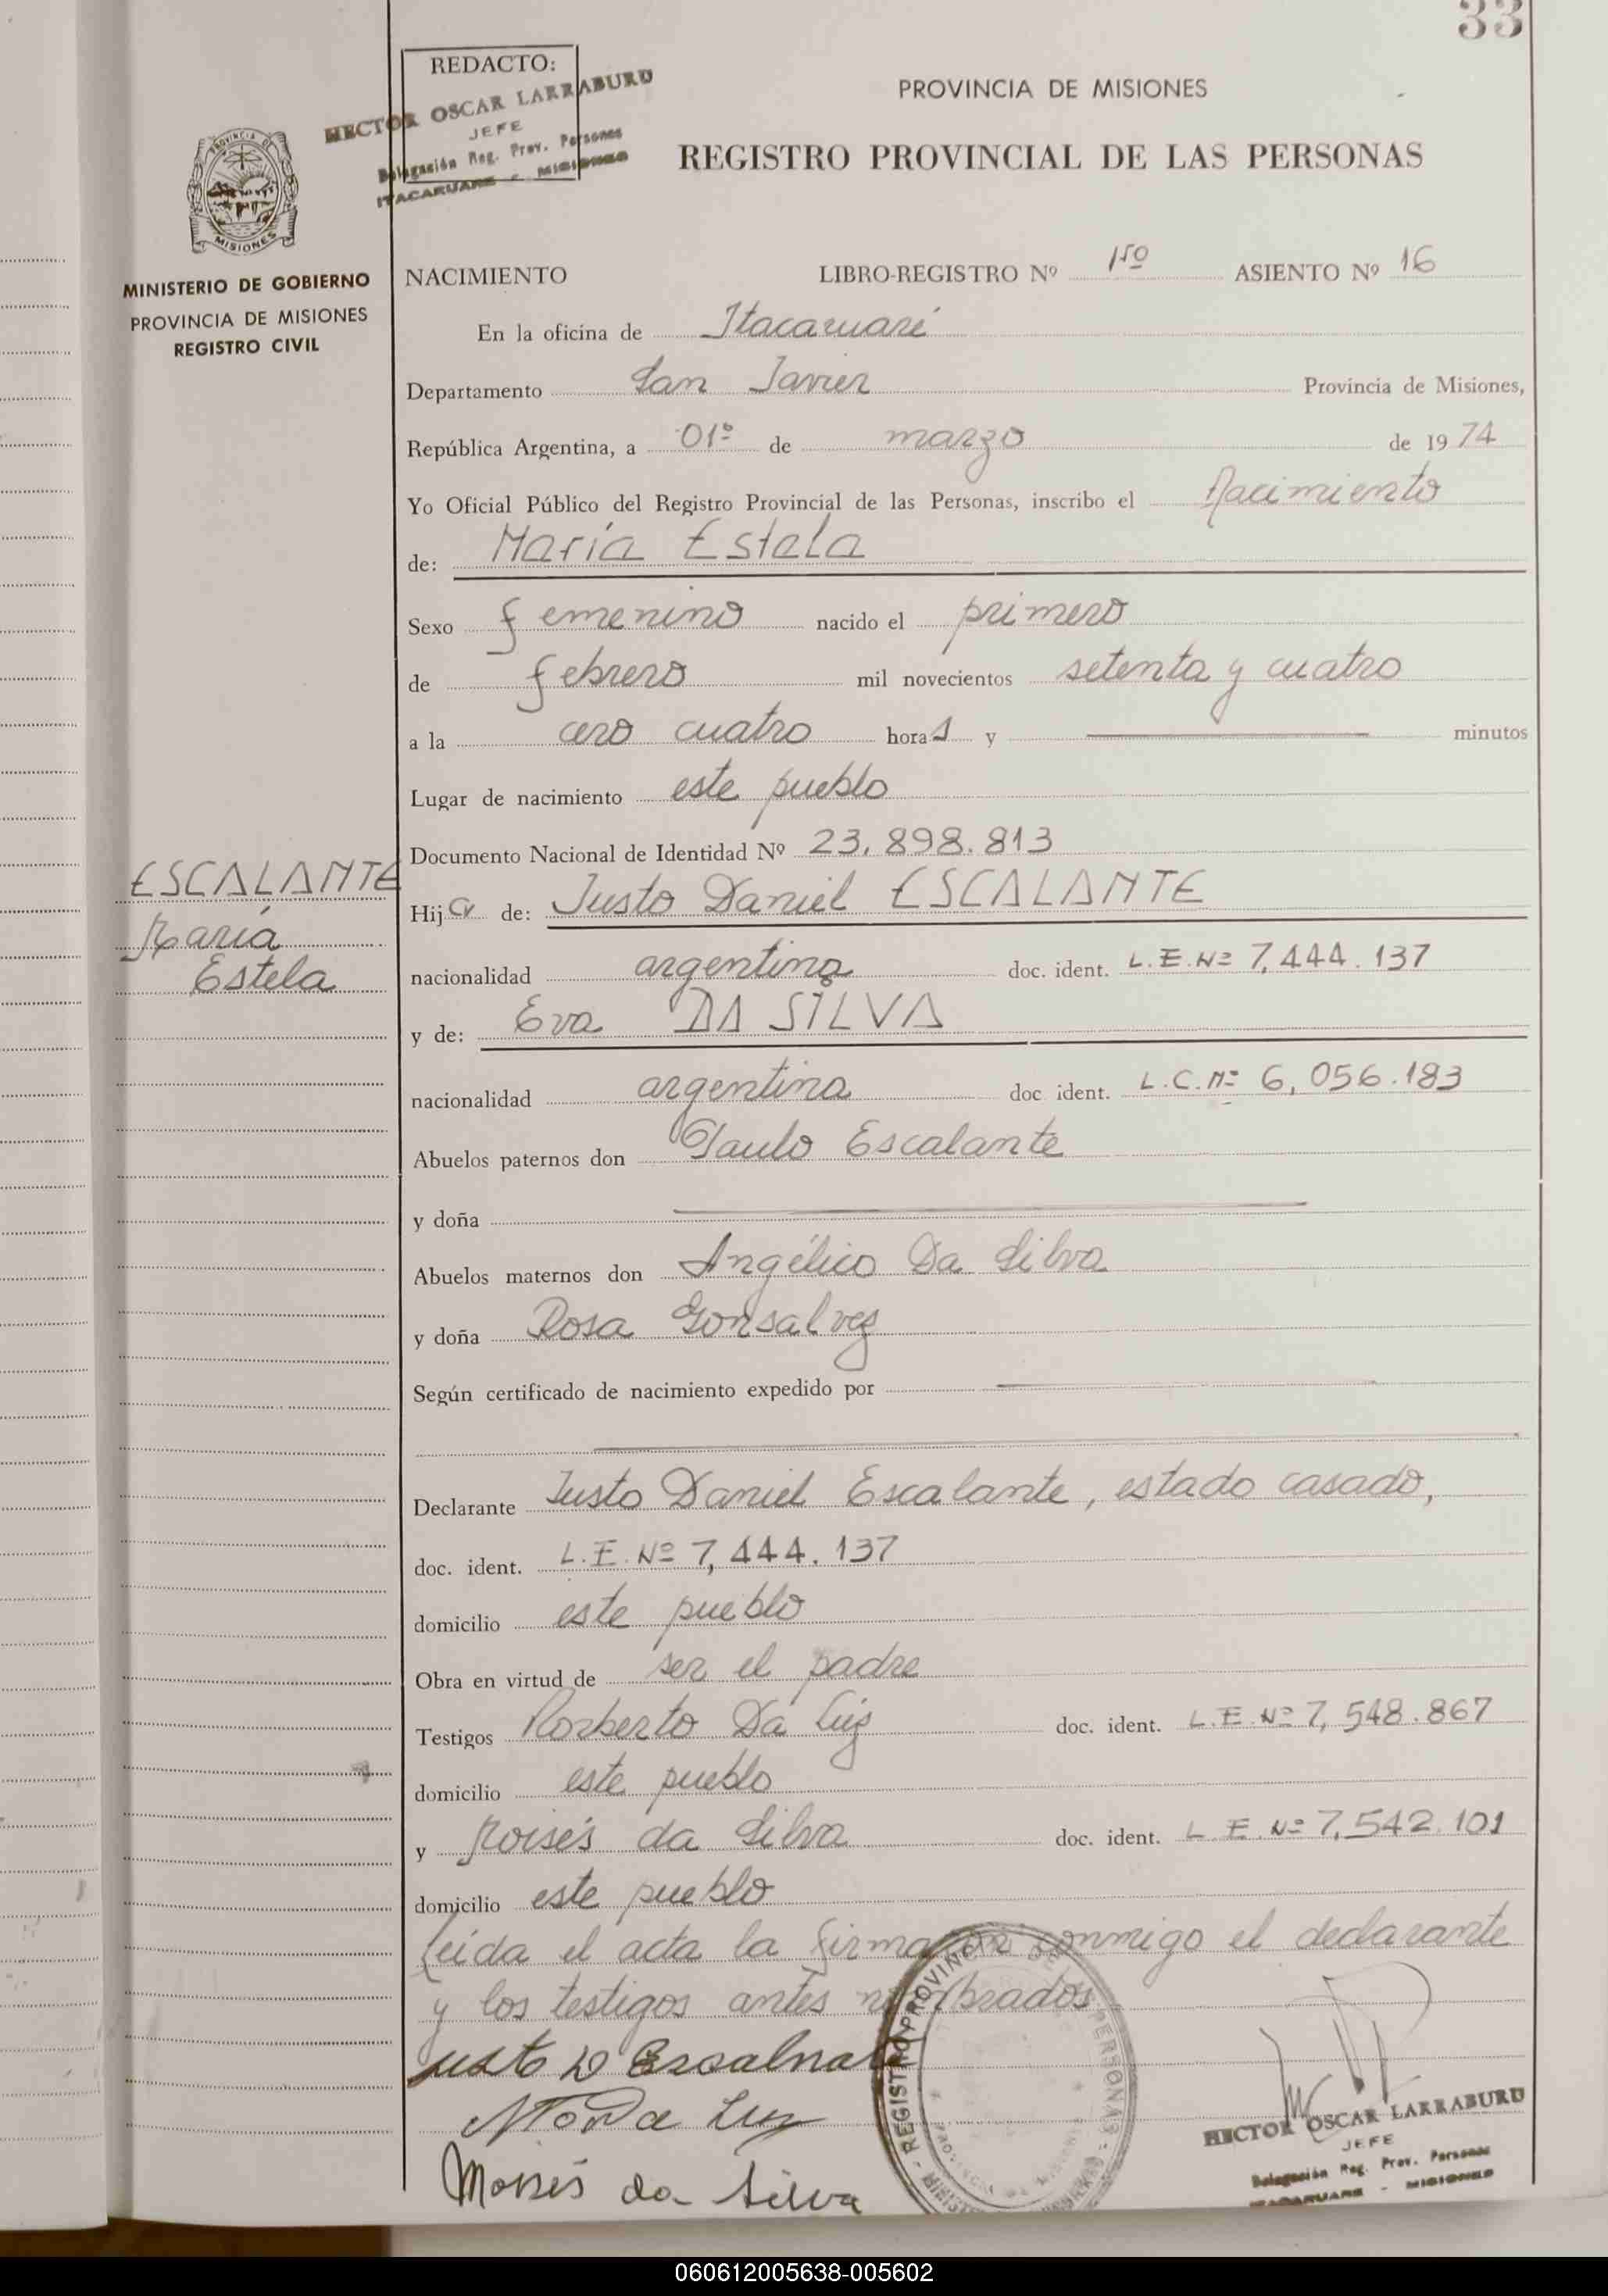 33
REDACTO:
HECTOR OSCAR LARRABURU
JEFE
Delegación Reg. Prov. Personas
ITACARUARE - MISIONES
PROVINCIA DE MISIONES
REGISTRO PROVINCIAL DE LAS PERSONAS
PROVINCIA
MISIONES
MINISTERIO DE GOBIERNO
PROVINCIA DE MISIONES
REGISTRO CIVIL
NACIMIENTO LIBRO-REGISTRO Nº 1º ASIENTO Nº 16
En la oficina de Itacaruaré
Departamento San Javier Provincia de Misiones,
República Argentina, a 01º de marzo de 1974
Yo Oficial Público del Registro Provincial de las Personas, inscribo el Nacimiento
de: María Estela
Sexo femenino nacido el primero
de febrero mil novecientos setenta y cuatro
a la cero cuatro horas y minutos
Lugar de nacimiento este pueblo
Documento Nacional de Identidad Nº 23.898.813
ESCALANTE
María
Estela
Hija de: Justo Daniel ESCALANTE
nacionalidad argentina doc. ident. L.E.Nº 7,444.137
y de: Eva DA SILVA
nacionalidad argentina doc ident. L.C.Nº 6,056.183
Abuelos paternos don Paulo Escalante
y doña
Abuelos maternos don Angélico Da Silva
y doña Rosa Gonsalvez
Según certificado de nacimiento expedido por
Declarante Justo Daniel Escalante, estado casado,
doc. ident. L.E.Nº 7,444.137
domicilio este pueblo
Obra en virtud de ser el padre
Testigos Norberto Da Luz doc. ident. L.E.Nº 7,548.867
domicilio este pueblo
y Moisés da Silva doc. ident. L.E.Nº 7,542.101
domicilio este pueblo
Leída el acta la firman conmigo el declarante
y los testigos antes nombrados
Justo D
Da Luz
Moisés da Silva
REGISTRO PROVINCIAL DE LAS PERSONAS
HECTOR OSCAR LARRABURU
JEFE
Delegación Reg. Prov. Personas
ITACARUARE - MISIONES
060612005638-005602